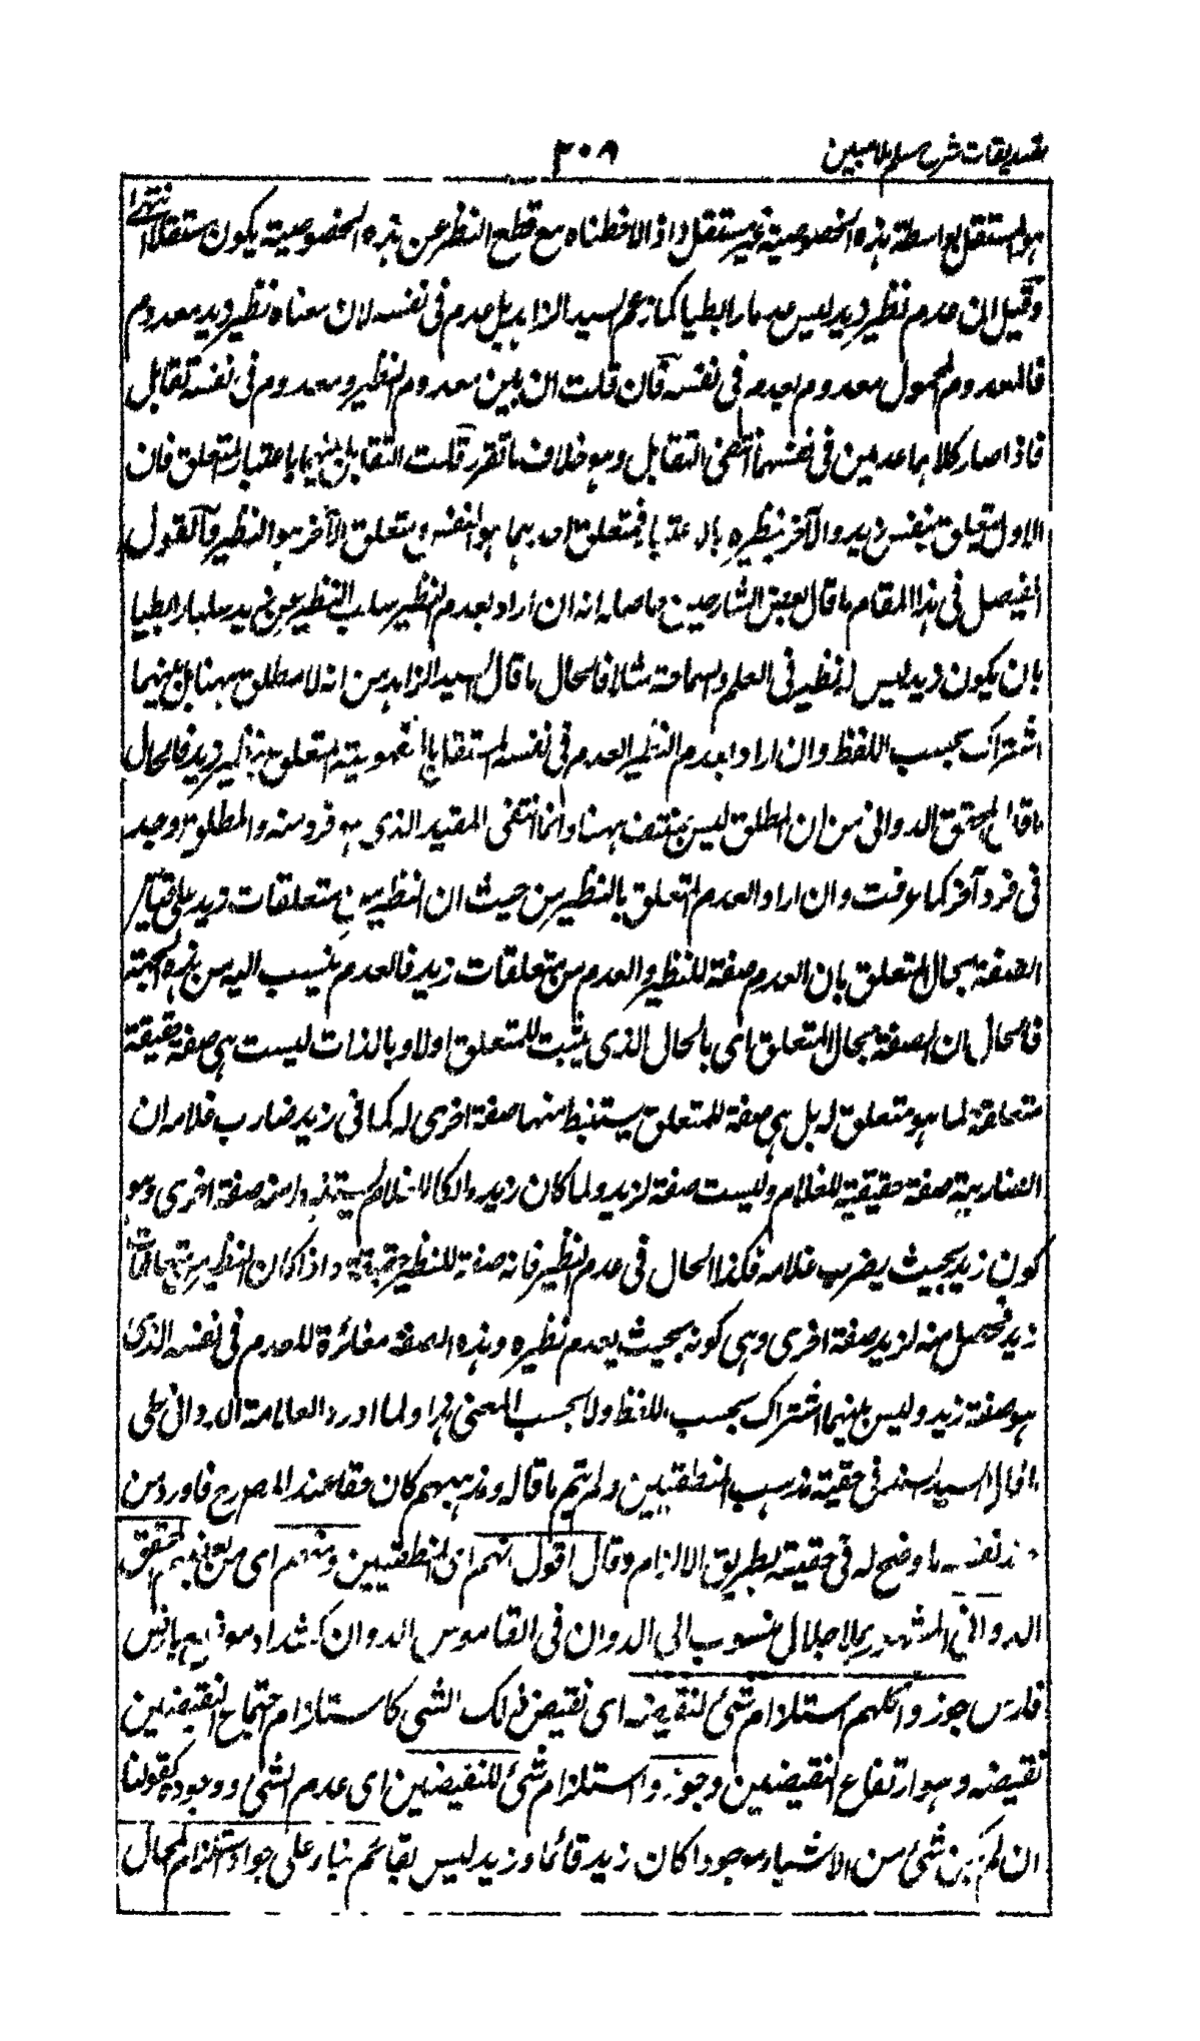 تصديقات شرح سلم ملا مبين ٣٠٨
هو المستقل بواسطة هذه الخصوصية غير مستقل واذا لاحظناه مع قطع النظر عن هذه الخصوصية يكون مستقلا انتهى
وقيل ان عدم نظير زيد ليس عدما رابطيا كما زعم السيد الزاهد بل عدم فى نفسه لان معناه نظير زيد معدوم
فالمعدوم المحمول معدوم بعدمه فى نفسه فان قلت ان بين معدوم النظير ومعدوم فى نفسه تقابل
فاذا صار كلاهما عدمين فى نفسهما انتفى التقابل وهو خلاف ما تقرر قلت التقابل بينهما باعتبار المتعلق فان
الاول يتعلق بنفس زيد والآخر بنظيره بالاعتبار فمتعلق احدهما هو نفسه ومتعلق الآخر هو النظير فالقول
الفيصل فى هذا المقام ما قال بعض الشارحين حاصله انه ان اراد بعدم النظير سلب النظير عن زيد سلبا رابطيا
بان يكون زيد ليس له نظير فى العلم والسماحة مثلا فالحال ما قال السيد الزاهد من انه لا مطلق ههنا بل بينهما
اشتراك بحسب اللفظ وان اراد بعدم النظير العدم فى نفسه المستقل بالمفهومية المتعلق بنظير زيد فالحال
ما قال المحقق الدوانى من ان المطلق ليس بمنتف ههنا وانما انتفى المقيد الذى هو فرد منه والمطلق وجد
فى فرد آخر كما عرفت وان اراد العدم المتعلق بالنظير من حيث ان النظير من متعلقات زيد على قياس
الصفة بحال المتعلق بان العدم صفة للنظير والعدم من متعلقات زيد فالعدم ينسب اليه من هذه الجهة
فالحال ان الصفة بحال المتعلق اى بالحال الذى يثبت للمتعلق اولا وبالذات ليست هى صفة حقيقة
متعلقة لما هو متعلق له بل هى صفة للمتعلق يستنبط منها صفة اخرى له كما فى زيد ضارب غلامه ان
الضاربية صفة حقيقية للغلام وليست صفة لزيد ولما كان زيد مالكا للغلام يستنبط منه صفة اخرى وهو
كون زيد بحيث يضرب غلامه فكذا الحال فى عدم النظير فانه صفة للنظير حقيقة واذا كان النظير من متعلقات
زيد فحصل منه لزيد صفة اخرى وهى كونه بحيث يعدم نظيره وهذه الصفة مغائرة للعدم فى نفسه الذى
هو صفة زيد وليس بينهما اشتراك بحسب اللفظ ولا بحسب المعنى هذا ولما اورد العلامة الدوانى على
ما قال السيد السند فى حقية مذهب المنطقيين ولم يتم ما قاله ومذهبهم كان حقا عند المصرح فاورد من
عند نفسه ما وضح له فى حقيته بطريق الالزام وقال اقول انهم اى المنطقيين ومنهم اى من بعضهم المحقق
الدوانى المشهور بملا جلال منسوب الى الدوان فى القاموس الدوان كشداد موضع بارض
فارس جوزوا كلهم استلزام شئ لنقيضه اى نقيض ذلك الشئ كاستلزام اجتماع النقيضين
نقيضه وهو ارتفاع النقيضين وجوزوا استلزام شئ للنقيضين اى عدم الشئ ووجوده كقولنا
ان لم يكن شئ من الاشياء موجودا كان زيد قائما وزيد ليس بقائم بناء على جواز استلزام المحال